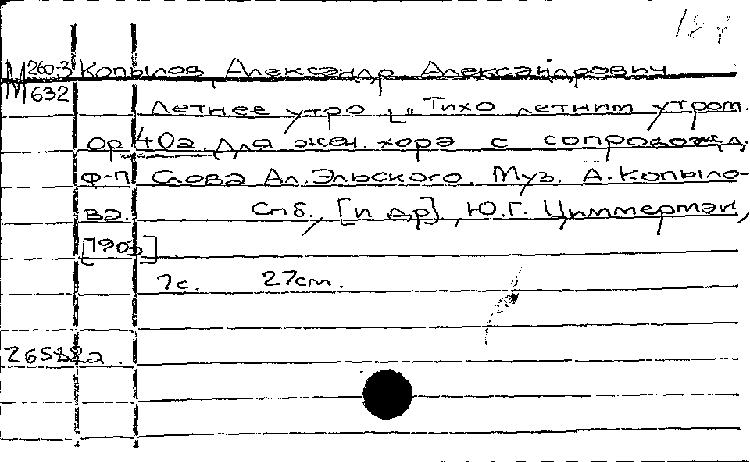 М 260-3 Копылов, Александр Александрович
632
Летнее утро [„Тихо летним утром.
Ор 40а. Для жен. хора с сопровожд.
ф-п Слова Ал. Эльского. Муз. А. Копыло-
ва. Спб., [и др], Ю.Г. Циммерман,
7с. 27cm.
265882а